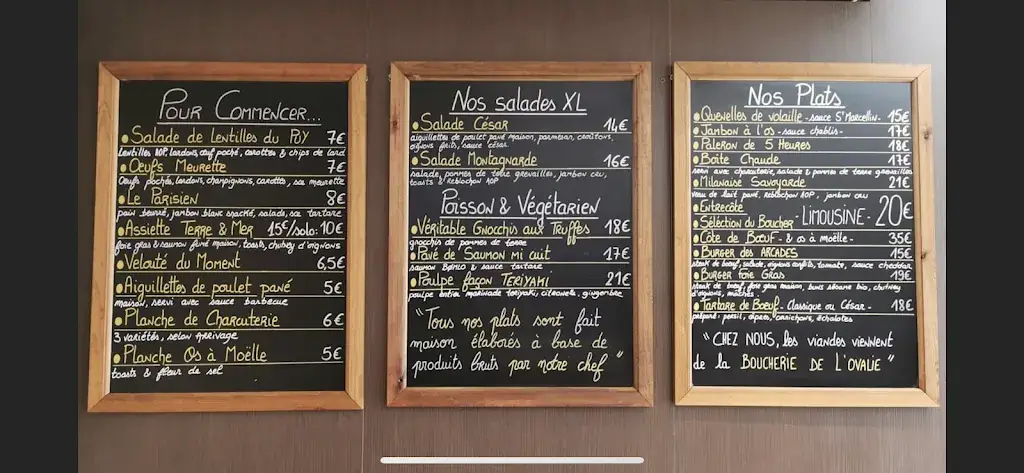 Pour Commencer...
Salade de Lentilles du Puy 7€
Lentilles AOP, lardons, œuf poché, carottes & chips de lard
Oeufs Meurette 7€
Oeufs pochés, lardons, champignons, carottes, sce meurette
Le Parisien 8€
pain beurré, jambon blanc snacké, salade, sce tartare
Assiette Terre & Mer 15€/solo:10€
foie gras & saumon fumé maison, toasts, chutney d'oignons
Velouté du Moment 6,5€
Aiguillettes de poulet pané 5€
maison, servi avec sauce barbecue
Planche de Charcuterie 6€
3 variétés, selon Arrivage
Planche Os à Moëlle 5€
toasts & fleur de sel
Nos salades XL
Salade César 14€
aiguillettes de poulet pané maison, parmesan, croûtons,
oignons frits, sauce césar
Salade Montagnarde 16€
salade, pommes de terre grenailles, jambon cru,
toasts & reblochon AOP
Poisson & Végétarien
Véritable Gnocchis aux Truffes 18€
gnocchis de pommes de terre
Pavé de Saumon mi cuit 17€
saumon BØMLO & sauce tartare
Poulpe façon Teriyaki 21€
poulpe entier marinade teriyaki, citronnelle, gingembre
"Tous nos plats sont fait
maison élaborés à base de
produits bruts par notre chef"
Nos Plats
Quenelles de volaille - sauce St Marcellin - 15€
Jambon à l'os - sauce chablis - 17€
Paleron de 5 Heures 18€
Boite Chaude 17€
servi avec charcuterie, salade & pommes de terre grenailles
Milanaise Savoyarde 21€
veau de lait pané, reblochon AOP, jambon cru
Entrecôte
Sélection du Boucher - Limousine - 20€
Côte de Bœuf - & os à moëlle - 35€
Burger des Arcades 15€
steak de bœuf, salade, oignons confits, tomate, sauce cheddar
Burger foie Gras 19€
steak de bœuf, foie gras maison, buns sésame bio, chutney
d'oignons, mâche
Tartare de Bœuf - Classique ou César - 18€
préparé: persil, câpres, cornichons, échalotes
"Chez nous, les viandes viennent
de la Boucherie de l'Ovalie"